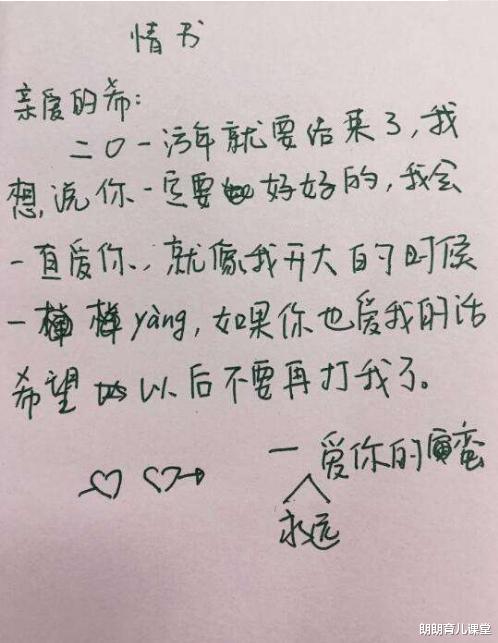 情书
亲爱的希:
二〇一污年就要结束了,我
想,说你一定要好好的,我会
一直爱你,就像我开大的时候
一样yàng,如果你也爱我的话
希望以后不要再打我了。
一爱你的寅蛮
永远
朗朗育儿课堂